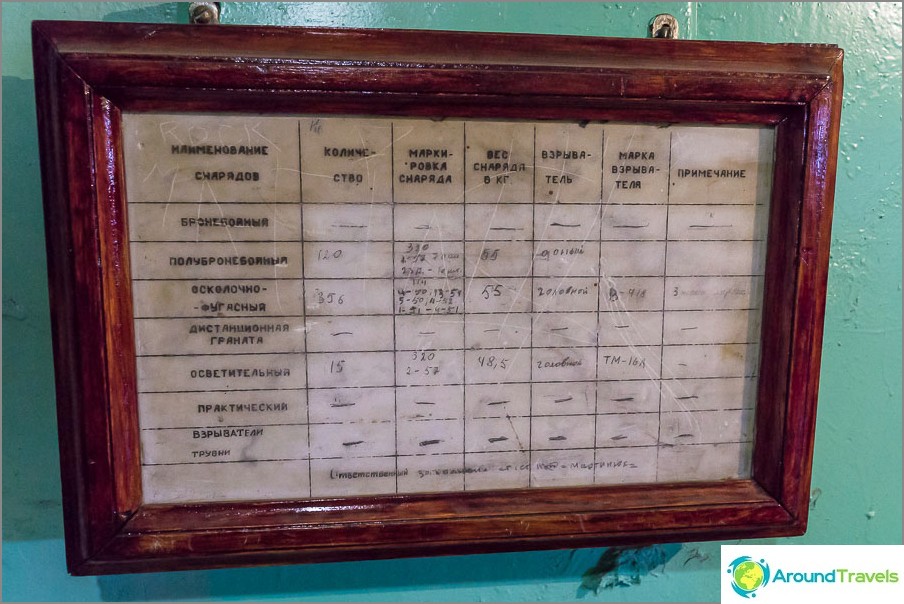 ROCK
НАИМЕНОВАНИЕ СНАРЯДОВ КОЛИЧЕ-СТВО МАРКИ-РОВКА СНАРЯДА ВЕС СНАРЯДА В КГ. ВЗРЫВА-ТЕЛЬ МАРКА ВЗРЫВА-ТЕЛЯ ПРИМЕЧАНИЕ
БРОНЕБОЙНЫЙ — — — — — —
ПОЛУБРОНЕБОЙНЫЙ 120 55 донный
ОСКОЛОЧНО-
-ФУГАСНЫЙ 356 55 головной
ДИСТАНЦИОННАЯ
ГРАНАТА — — — — — —
ОСВЕТИТЕЛЬНЫЙ 15 320 2-57 48,5 головной ТМ-16А —
ПРАКТИЧЕСКИЙ — — — — — —
ВЗРЫВАТЕЛИ
ТРУБКИ — — — — — —
Ответственный
AroundTravels